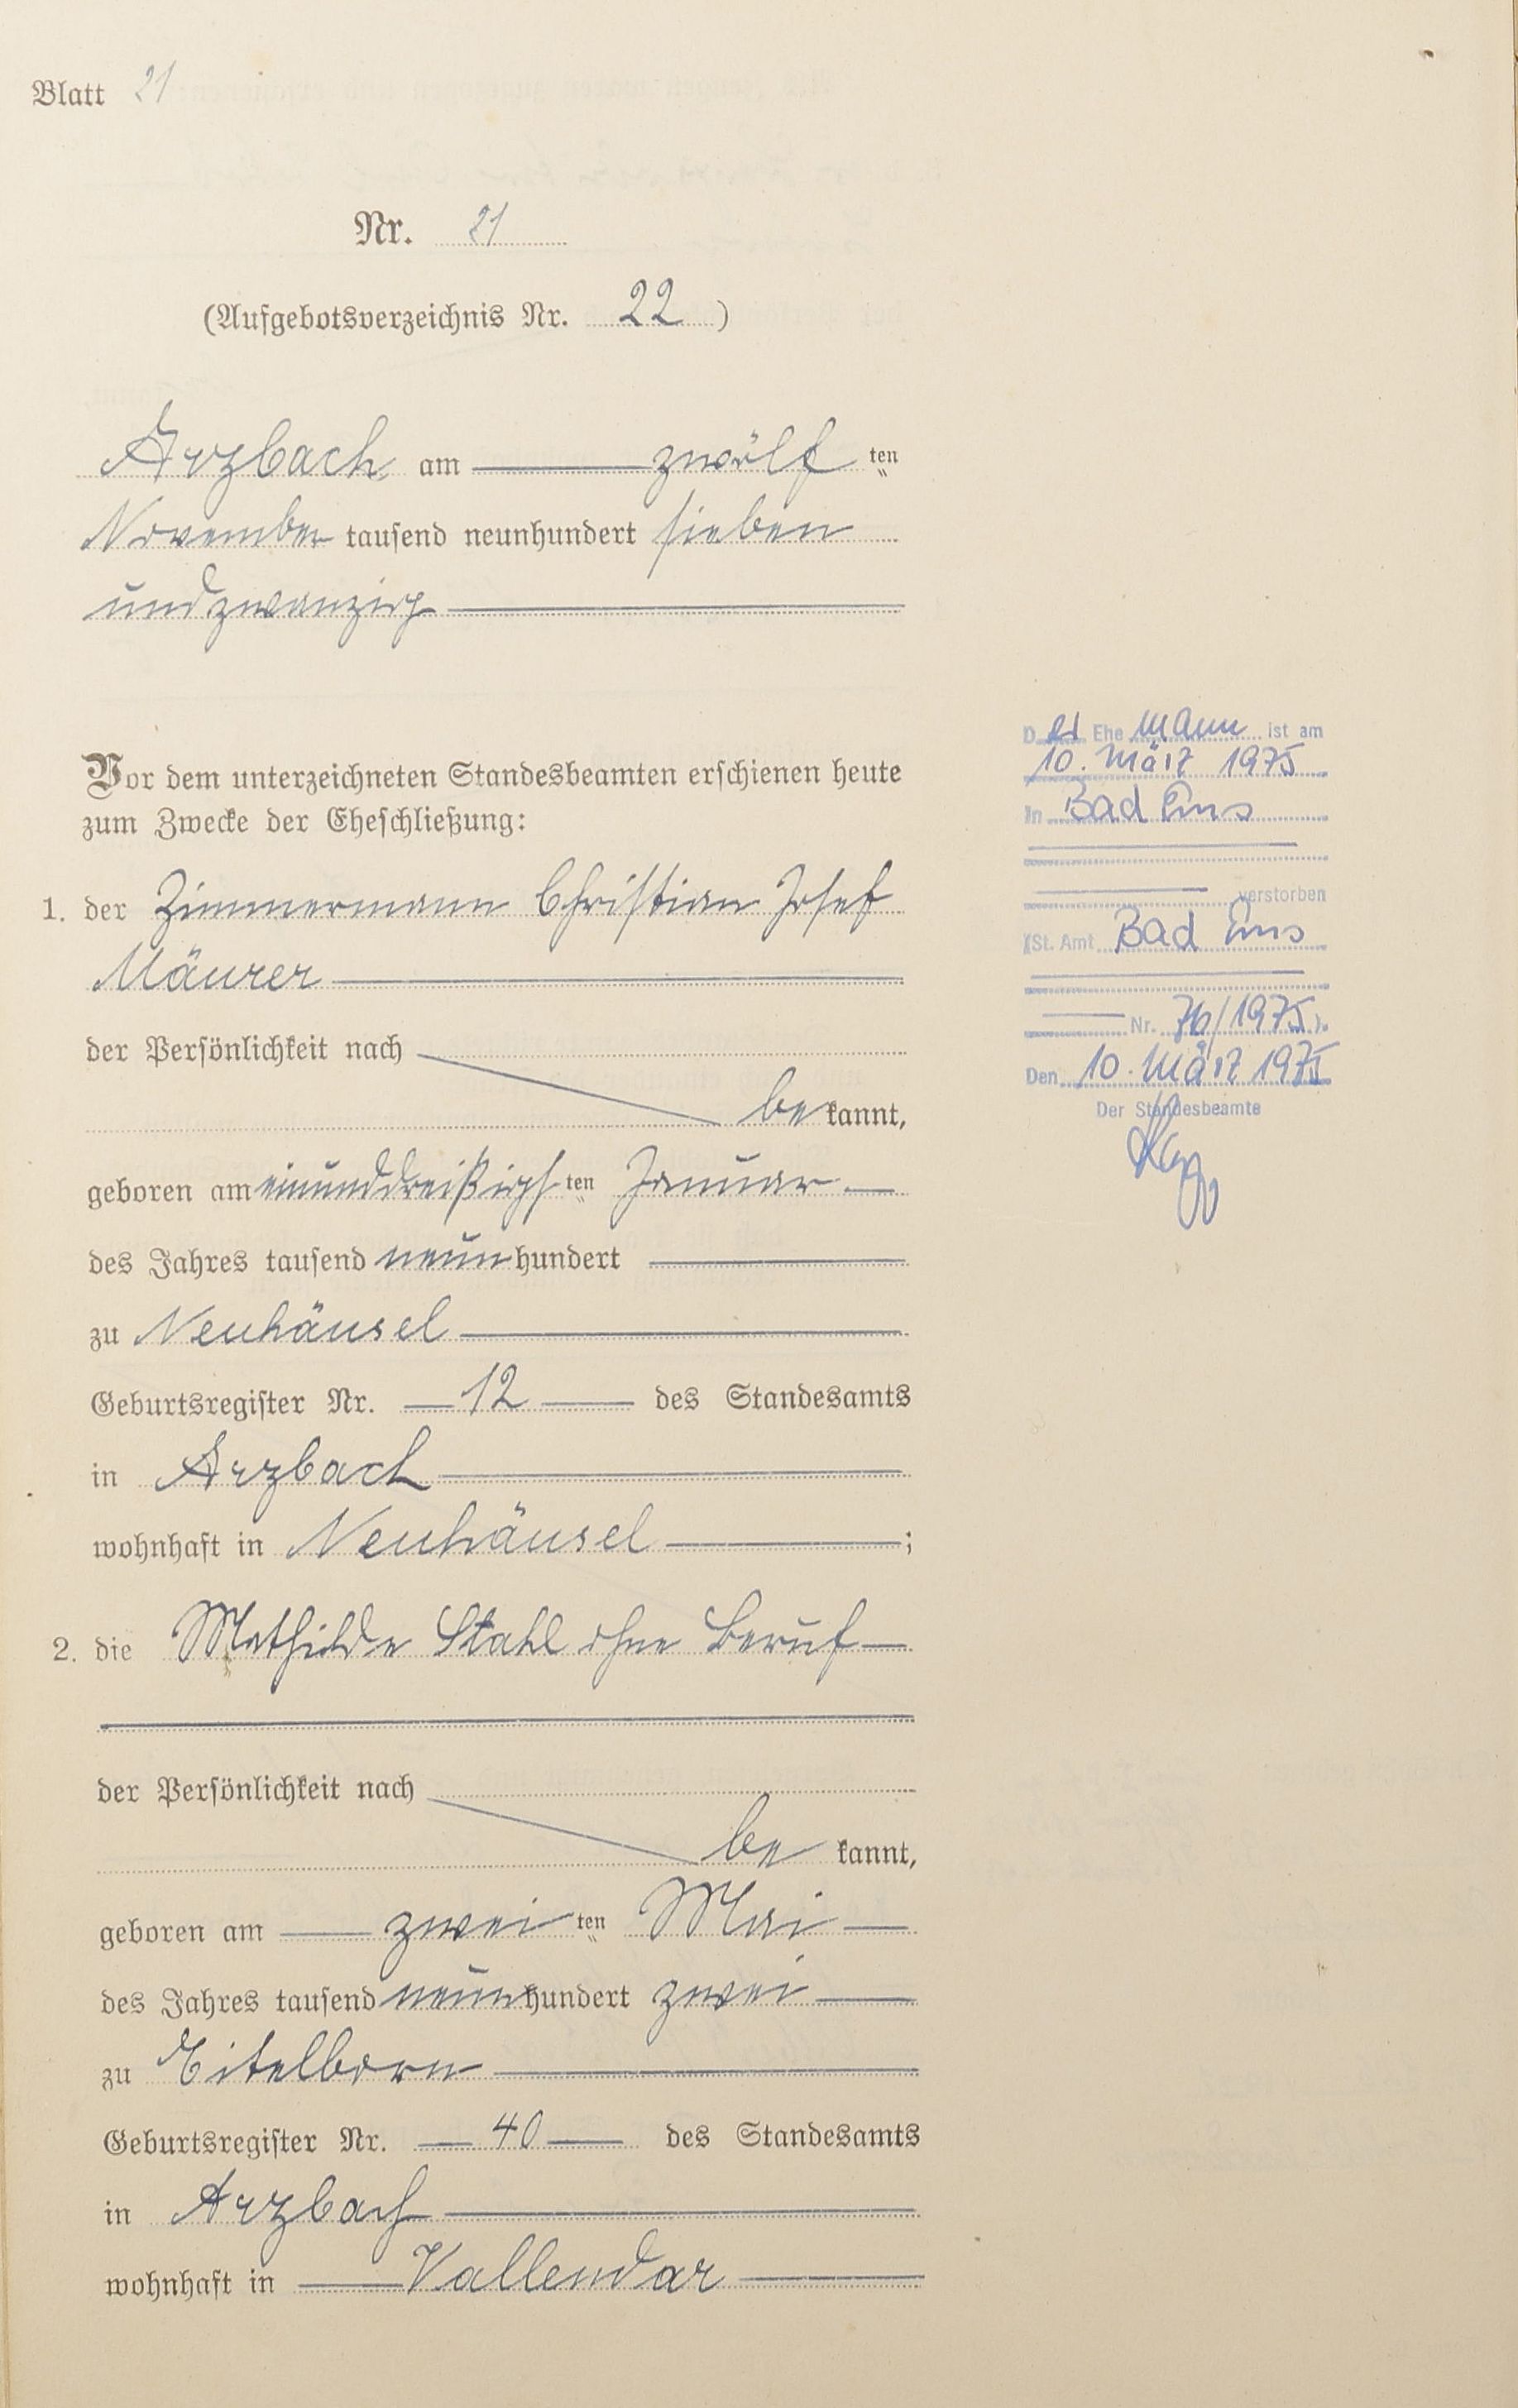 Blatt 21
Nr. 21
(Aufgebotsverzeichnis Nr. 22)
Arzbach am zwölf ten
November tausend neunhundert sieben
undzwanzig
Vor dem unterzeichneten Standesbeamten erschienen heute
zum Zwecke der Eheschließung:
1. der Zimmermann Christian Josef
Mäurer
der Persönlichkeit nach
be kannt,
geboren am einunddreißigs ten Januar
des Jahres tausend neun hundert
zu Neuhäusel
Geburtsregister Nr. 12 des Standesamts
in Arzbach
wohnhaft in Neuhäusel ;
2. die Mathilde Stahl ohne Beruf
der Persönlichkeit nach
be kannt,
geboren am zwei ten Mai
des Jahres tausend neun hundert zwei
zu Eitelborn
Geburtsregister Nr. 40 des Standesamts
in Arzbach
wohnhaft in Vallendar
D er Ehe mann ist am
10. März 1975
in Bad Ems
verstorben
(St. Amt Bad Ems
Nr. 76/1975).
Den 10. März 1975
Der Standesbeamte